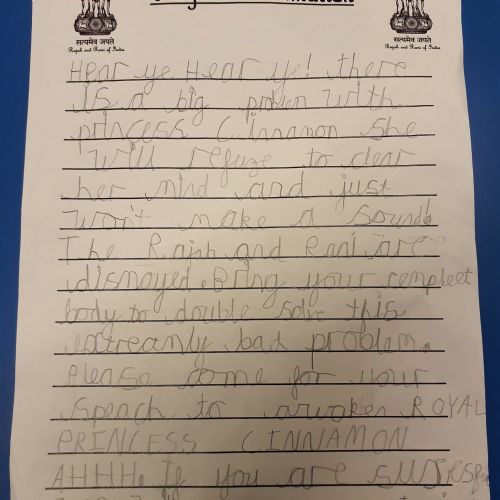 सत्यमेव जयते
Rajah and Rani of India
सत्यमेव जयते
Rajah and Rani of India
Hear ye Hear ye! there
is a big problem with
princess Cinnamon she
will refuze to clear
her mind and just
won't make a sound.
The Rajah and Rani are
dismayed. Bring your compleet
body to double solve this
extreamly bad problem.
Please come for your
speach to awaken ROYAL
PRINCESS CINNAMON
AHHH. If you are